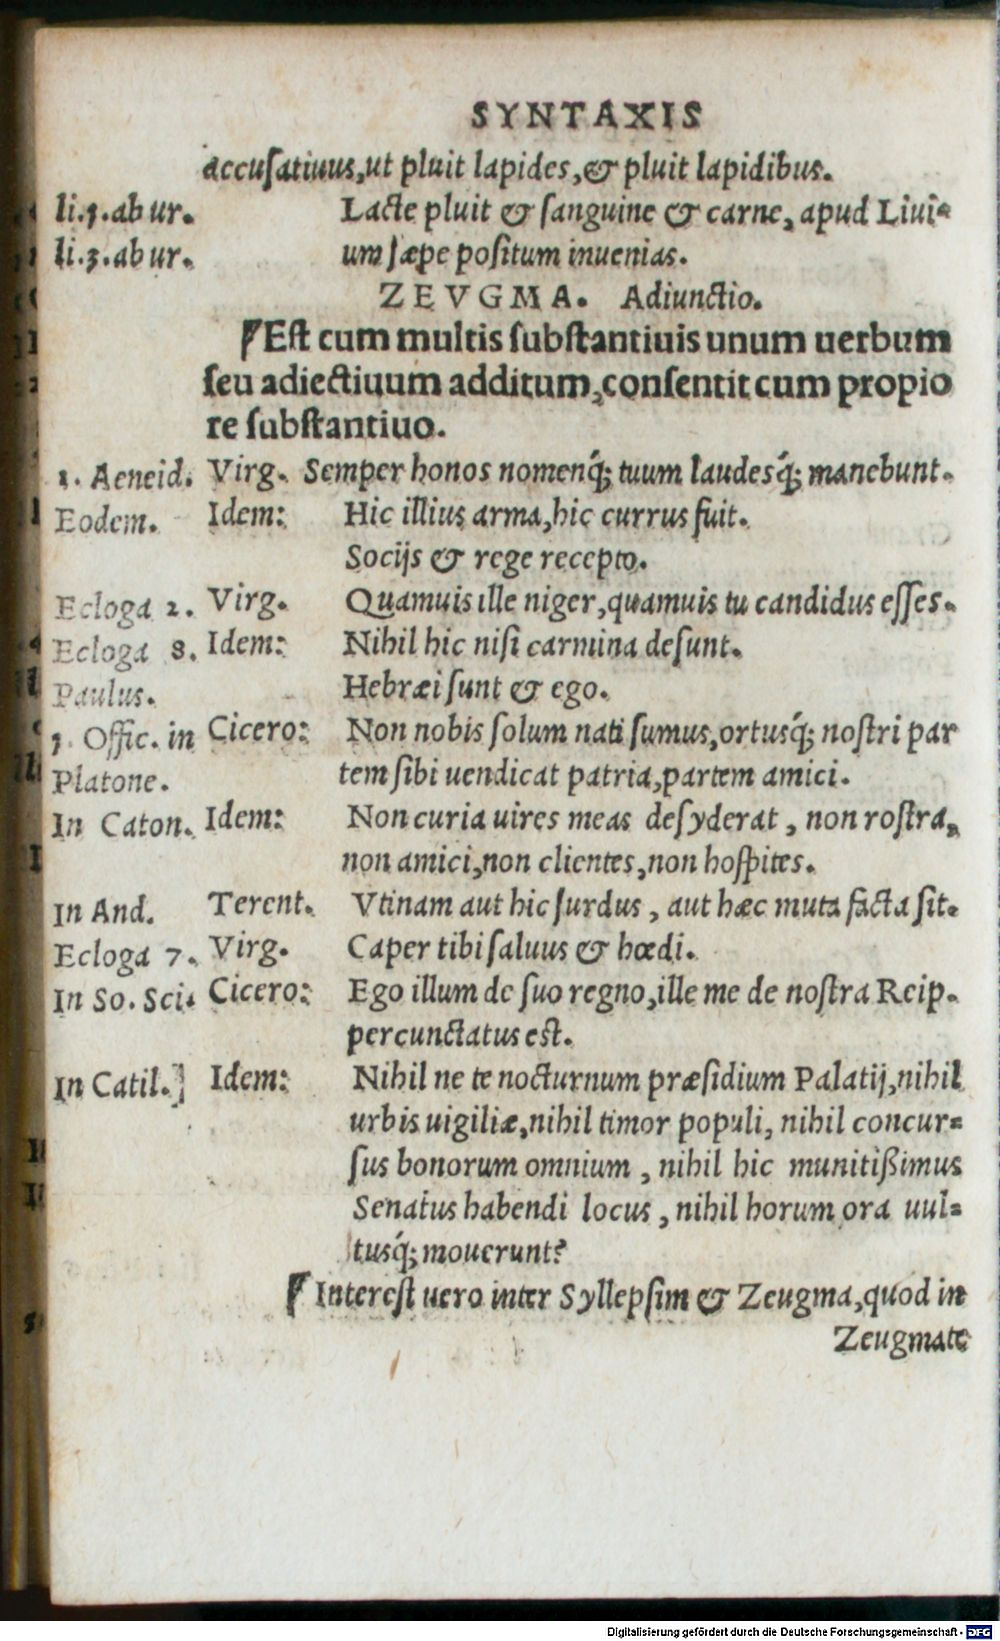 SYNTAXIS
accusatiuus,ut pluit lapides,& pluit lapidibus.
li.1.ab ur. Lacte pluit & sanguine & carne, apud Liui-
li.3.ab ur. um sæpe positum inuenias.
ZEVGMA. Adiunctio.
Est cum multis substantiuis unum uerbum
seu adiectiuum additum,consentit cum propio
re substantiuo.
1. Aeneid. Virg. Semper honos nomenq́; tuum laudesq́; manebunt.
Eodem. Idem: Hic illius arma,hic currus fuit.
Socijs & rege recepto.
Ecloga 2. Virg. Quamuis ille niger,quamuis tu candidus esses.
Ecloga 8. Idem: Nihil hic nisi carmina desunt.
Paulus. Hebræi sunt & ego.
1. Offic. in Cicero: Non nobis solum nati sumus,ortusq́; nostri par
Platone. tem sibi uendicat patria,partem amici.
In Caton. Idem: Non curia uires meas desyderat, non rostra,
non amici,non clientes,non hospites.
In And. Terent. Vtinam aut hic surdus, aut hæc muta facta sit.
Ecloga 7. Virg. Caper tibi saluus & hœdi.
In So. Sci. Cicero: Ego illum de suo regno,ille me de nostra Reip.
percunctatus est.
In Catil.] Idem: Nihil ne te nocturnum præsidium Palatij,nihil
urbis uigiliæ,nihil timor populi, nihil concur-
sus bonorum omnium, nihil hic munitißimus
Senatus habendi locus, nihil horum ora uul-
tusq́; mouerunt?
Interest uero inter Syllepsim & Zeugma,quod in
Zeugmate
Digitalisierung gefördert durch die Deutsche Forschungsgemeinschaft - DFG